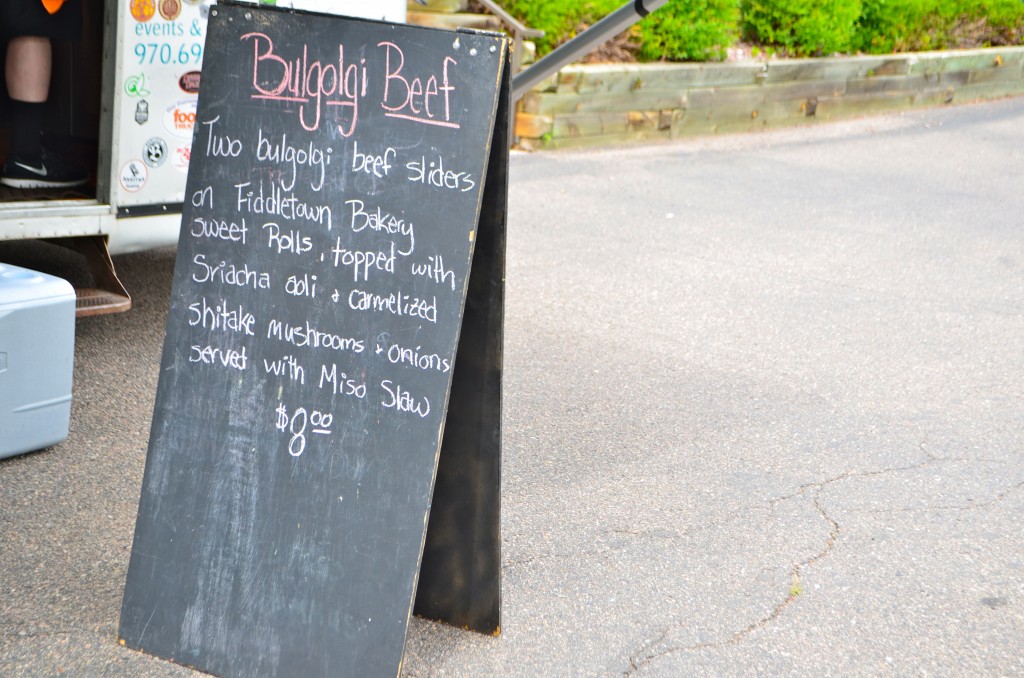 events &
970.69
Bulgolgi Beef
Two bulgolgi beef sliders
on Fiddletown Bakery
sweet Rolls, topped with
Sriacha aoli & carmelized
shitake mushrooms & onions
served with Miso Slaw
$8.00